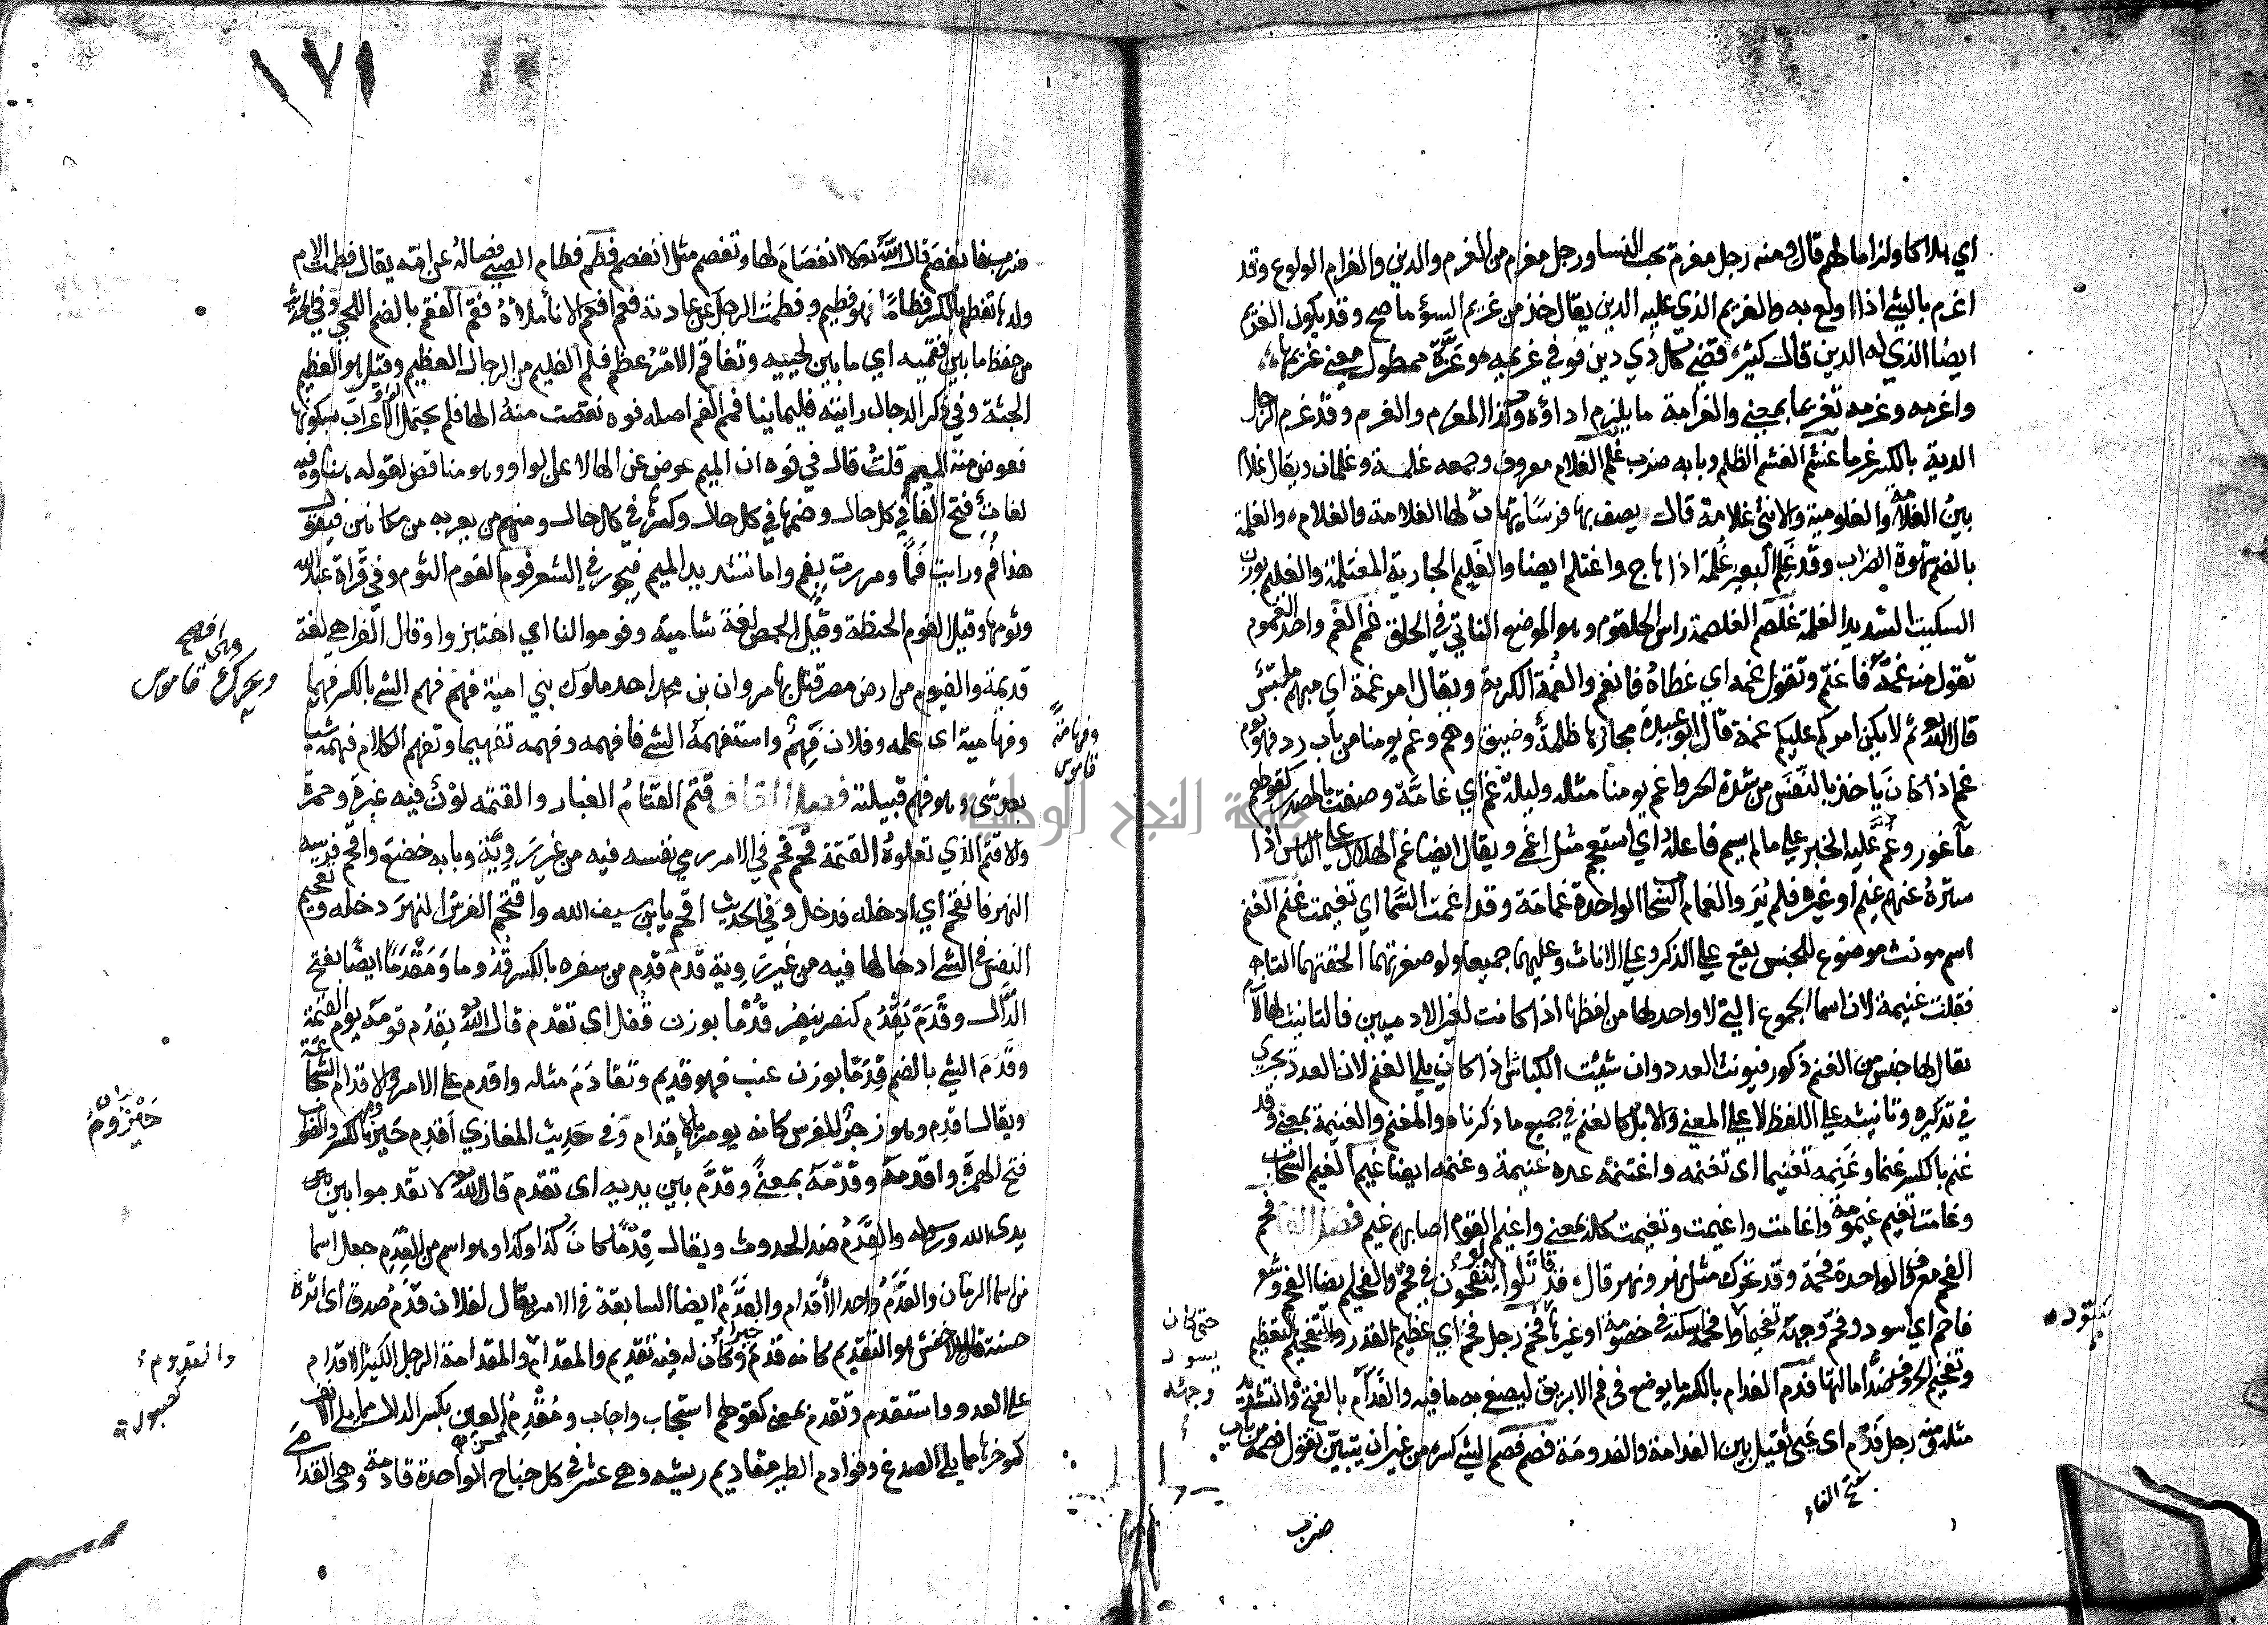 اي هلاكا ولزاما لهم قال ومنه رجل مغرم بحب النسا ورجل مغرم من الغرم والدين والغرام الولوع وقد
اغرم بالشي اذا اولع به والغريم الذي عليه الدين يقال خذ من غريم السوء ما صح وقد يكون الغريم
ايضا الذي له الدين قال كثير قضى كل ذي دين فوفي غريمه وعزة ممطول معنى غريمها
واغرمه وغرمه تغريما بمعنى والغرامة ما يلزم اداؤه وكذا المغرم والغرم وقد غرم الرجل
الدية بالكسر غرما غشم الغشم الظلم وبابه ضرب غلم الغلام معروف وجمعه غلمة وغلمان ويقال غلام
بين الغلامة والغلومية والانثى غلامة قال يصف بها فرسا تهان لها الغلامة والغلام والغلمة
بالضم شهوة الضراب وقد غلم البعير غلمة اذا هاج واغتلم ايضا والغليم الجارية المغتلمة والغليم بوزن
السكيت الشديد الغلمة غلصم الغلصمة راس الحلقوم وهو الموضع الناتي في الحلق غمم الغم واحد الغموم
تقول منه غمه فاغتم وتقول غمه اي غطاه فانغم والغمة الكربة ويقال امر غمة اي مبهم ملتبس
قال الله تعالى ثم لا يكن امركم عليكم غمة قال ابو عبيدة مجازها ظلمة وضيق وهم وغم يومنا من باب رد فهو يوم
غم اذا كان ياخذ بالنفس من شدة الحر واغم يومنا مثله وليلة غم اي غامة وصفت بالمصدر كقولهم
ماء غور وغم عليه الخبر على ما لم يسم فاعله اي استعجم مثل اغمي ويقال ايضا غم الهلال على الناس اذا
ستره عنهم غيم او غيره فلم ير والغمام السحاب الواحدة غمامة وقد اغمت السما اي تغيمت غنم الغنم
اسم مونث موضوع للجنس يقع على الذكر وعلى الاناث وعليهما جميعا ولو صغرتهما الحقتهما التاء
فقلت غنيمة لان اسما الجموع التي لا واحد لها من لفظها اذا كانت لغير الادميين فالتانيث لها لازم
يقال لها خمس من الغنم ذكور فيونث العدد وان شئت الكباش اذا كان يلي الغنم لان العدد يجري
في تذكيره وتانيثه على اللفظ لا على المعنى والابل كالغنم في جميع ما ذكرناه والمغنم والغنيمة بمعنى وقد
غنم بالكسر غنما وغنمه تغنيما اي تغنمه واغتنمه عده غنيمة وغنمه ايضا غيم الغيم السحاب
وغامت تغيم غيومة واغامت واغيمت وتغيمت كله بمعنى واغيم القوم اصابهم غيم فصل الفا فحم
الفحم معروف الواحدة فحمة وقد تحرك مثل نهر ونهر قال قد قاتلوا لو ينفخون في فحم والفحيم ايضا الفحم وشعر
فاحم اي اسود وفحم وجهه تفحيما وافحمه اسكته في خصومة او غيرها فخم رجل فخم اي عظيم القدر والتفخيم التعظيم
وتفخيم الحروف ضد امالتها فدم الفدام بالكسر ما يوضع في فم الابريق ليصفى به ما فيه والفدام بالفتح والتشديد
مثله ومنه رجل فدم اي عيي ثقيل بين الفدامة والفدومة فصم فصم الشي كسره من غير ان يتبين تقول فصمه من باب
بفتح الفاء
ضرب
سكتوده
حتى كان
يسود
وجهه
١٧١
ضرب فانفصم قال الله تعالى لا انفصام لها وتفصم مثل انفصم فطم فطام الصبي فصاله عن امه يقال فطمت الام
ولدها تفطمه بالكسر فطاما فهو فطيم وفطمت الرجل عن عادته فعم افعم الاناء ملاه فقم الفقم بالضم اللحي وفي الحديث
من حفظ ما بين فقميه اي ما بين لحييه وتفاقم الامر عظم فلم الفيلم من الرجال العظيم وقيل هو العظيم
الجثة وفي ذكر الدجال رايته فيلمانيا فمم الفم اصله فوه نقصت منه الها فلم يحتمل الواو الاعراب لسكونها
فعوض منه الميم قلت قال في فوه ان الميم عوض عن الها لا عن الواو وهو مناقض لقوله هنا وفيه
لغات فتح الفا في كل حال وضمها في كل حال وكسرها في كل حال ومنهم من يعربه من مكانين فيقول
هذا فم ورايت فما ومررت بفم واما تشديد الميم فيجوز في الشعر فوم الفوم الثوم وفي قراة عبد الله
وثومها وقيل الفوم الحنطة وقيل الحمص لغة شامية وفوموا لنا اي اختبزوا وقال الفرا هي لغة
قديمة والفيوم من ارض مصر قتل بها مروان بن محمد احد ملوك بني امية فهم فهم الشي بالكسر فهما
وفهامية اي علمه وفلان فهم واستفهمه الشي فافهمه وفهمه تفهيما وتفهم الكلام فهمه شيا
بعد شي وهو فهم قبيلة فصل القاف قتم القتام الغبار والقتمة لون فيه غبرة وحمرة
والاقتم الذي تعلوه القتمة قحم قحم في الامر رمى بنفسه فيه من غير روية وبابه خضع واقحم فرسه
النهر فانقحم اي ادخله فدخل وفي الحديث اقحم يا بن سيف الله واقتحم الفرس النهر دخله وتقحيم
النفس في الشي ادخالها فيه من غير روية قدم قدم من سفره بالكسر قدوما ومقدما ايضا بفتح
الدال وقدم يقدم كنصر ينصر قدما بوزن قفل اي تقدم قال الله يقدم قومه يوم القيمة
وقدم الشي بالضم قدما بوزن عنب فهو قديم وتقادم مثله واقدم على الامر والاقدام الشجاعة
ويقال اقدم وهو زجر للفرس كانه يومر بالاقدام وفي حديث المغازي اقدم حيزوم بالكسر والصواب
فتح الهمزة واقدمه وقدمه بمعنى وقدم بين يديه اي تقدم قال الله لا تقدموا بين
يدي الله ورسوله والقدم ضد الحدوث ويقال قدما كان كذا وكذا وهو اسم من القدم جعل اسما
من اسما الزمان والقدم واحد الاقدام والقدم ايضا السابقة في الامر يقال لفلان قدم صدق اي اثرة
حسنة قال الاخفش هو التقديم كانه قدم خيرا وكان له فيه تقديم والمقدام والمقدامة الرجل الكثير الاقدام
على العدو واستقدم وتقدم بمعنى كقولهم استجاب واجاب ومقدم العين بكسر الدال مما يلي الانف
كموخرها مما يلي الصدغ وقوادم الطير مقاديم ريشه وهي عشر في كل جناح الواحدة قادمة وهي القدامى
وفهامة
قاموس
ويحرك قاموس
حيزوم
والقدوم